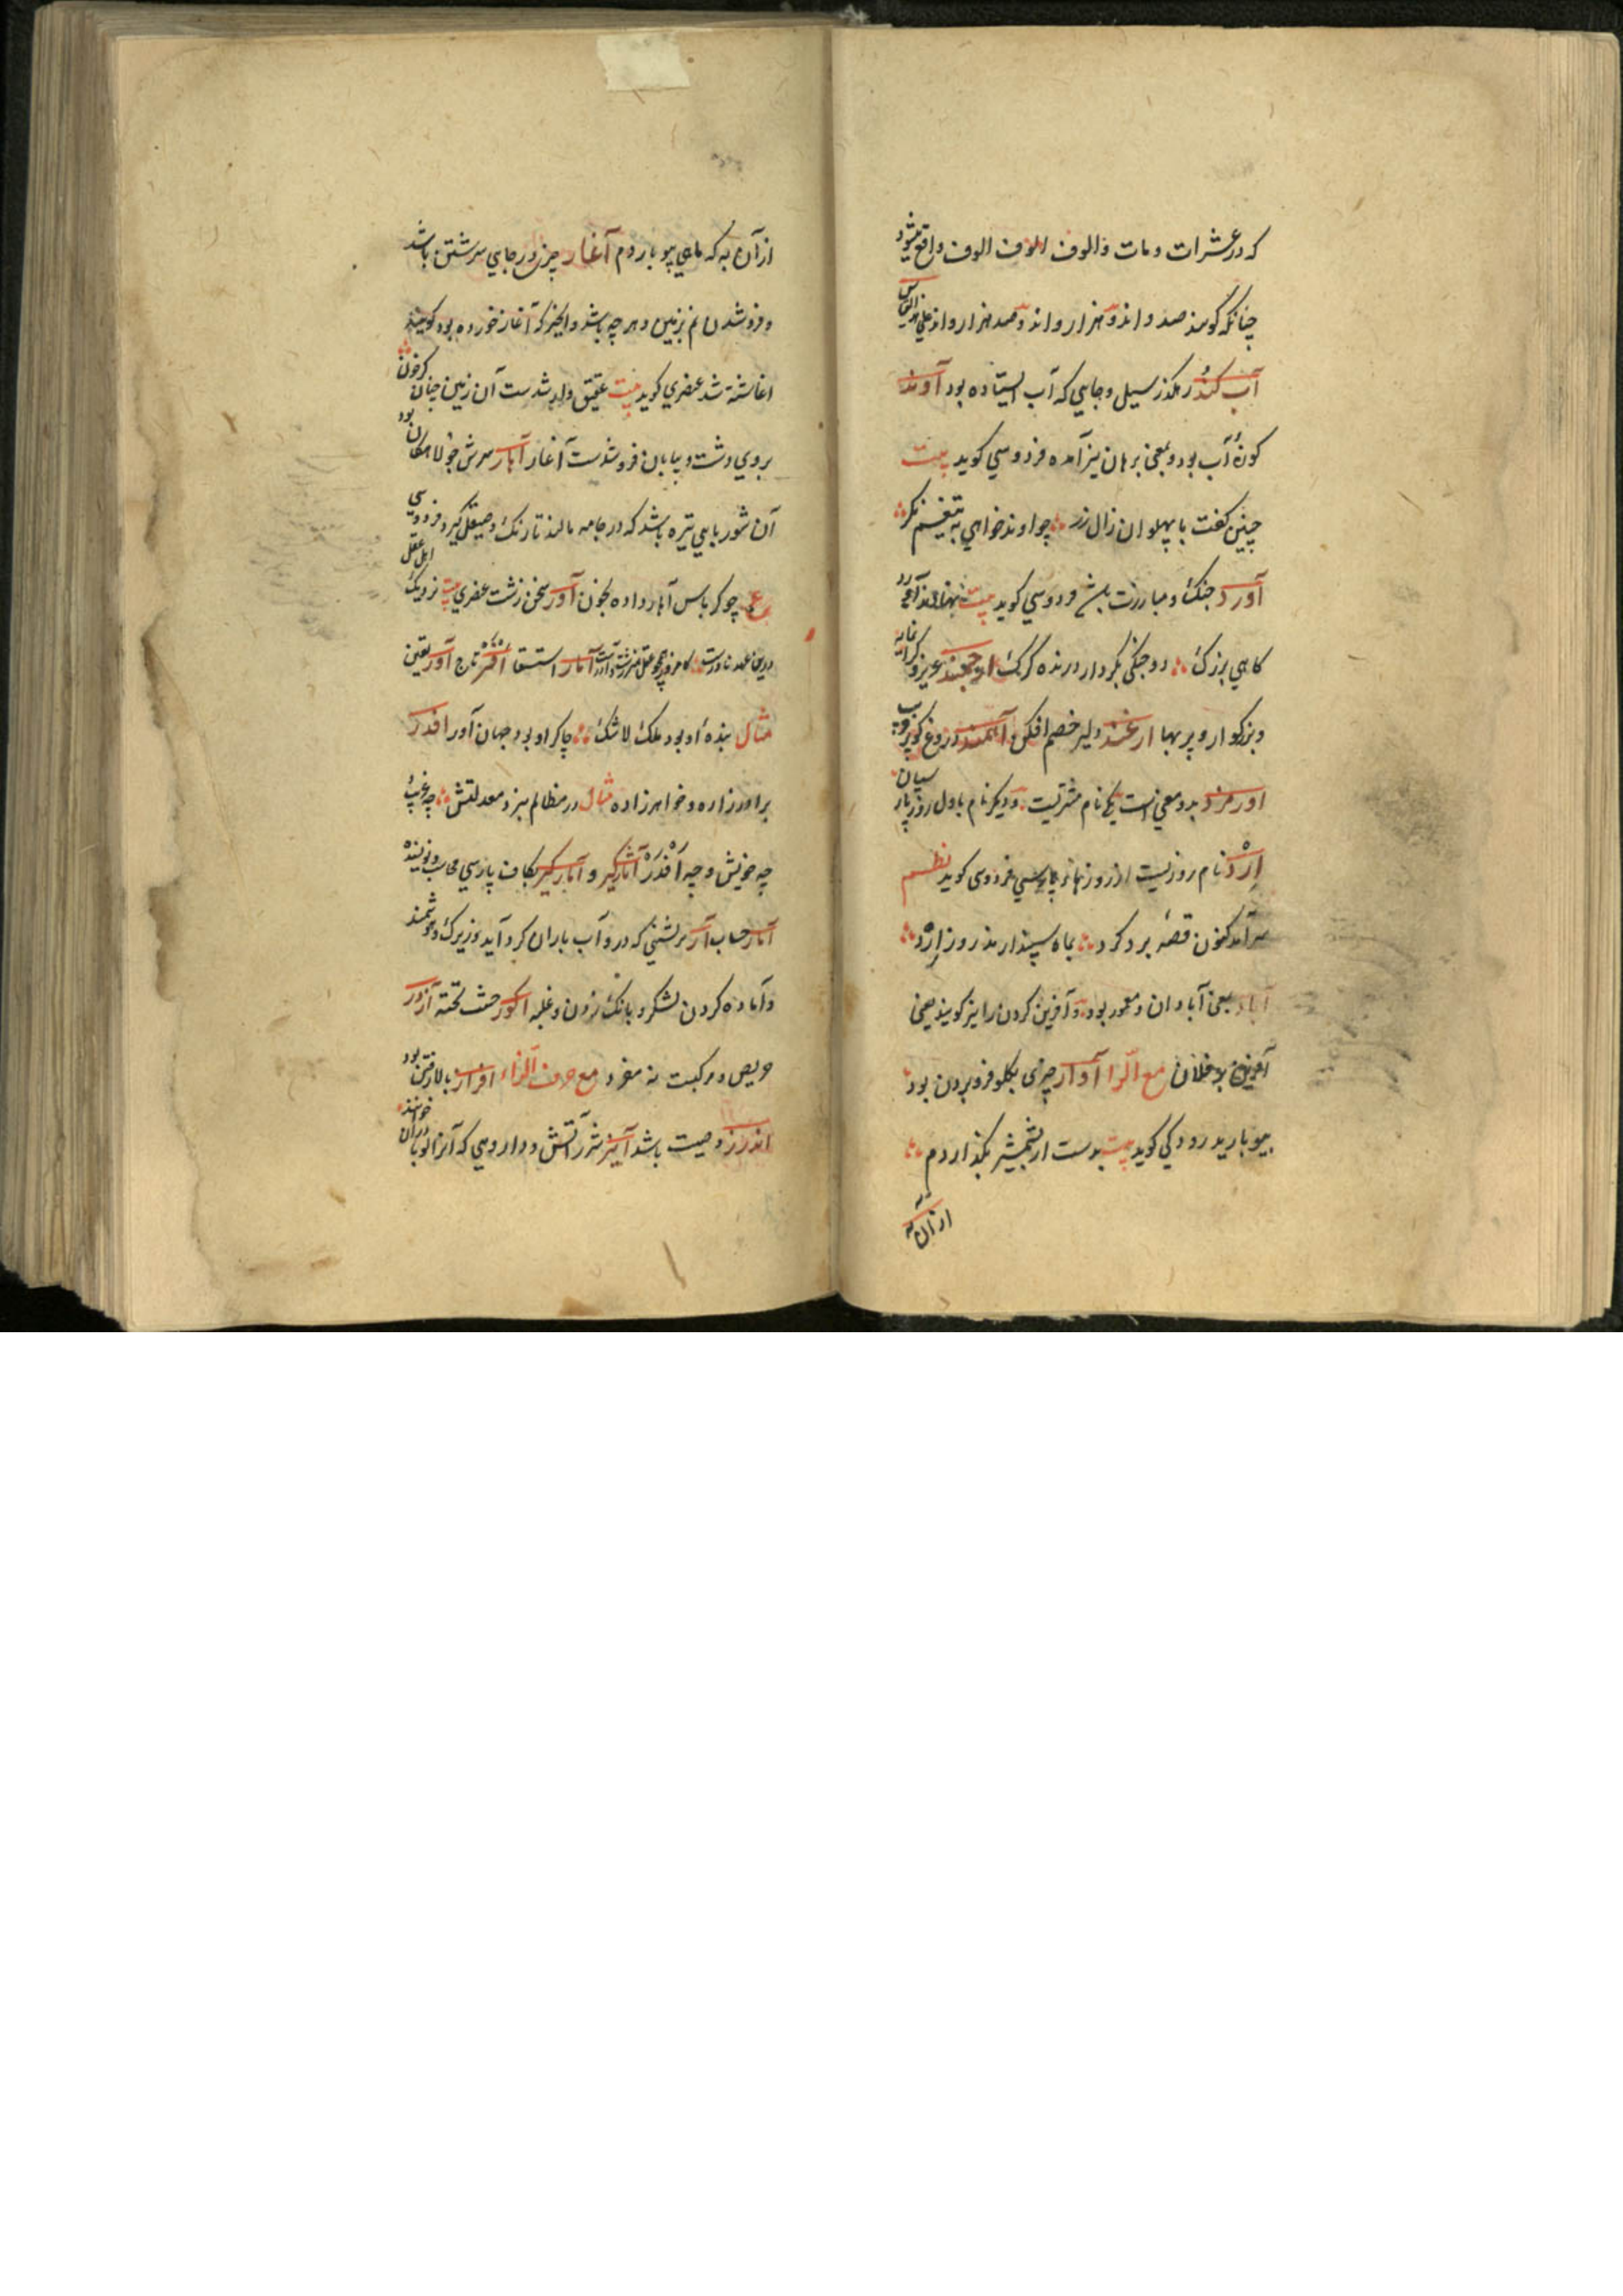 که در عشرات و مات و الوف الوف الوف واقع میشود
چنانکه کویند صد و اند و هزار و اند و صد هزار و اند علی هذا القیاس
آب کند رهکذر سیل و جایی که آب ایستاده بود آوند
کونهٔ آب بود و بمعنی برهان نیز آمده فردوسی کوید بیت
چنین کفت با پهلوان زال زر چو اوند خواهی به تیغم نکر
آورد جنک و مبارزت باشد فردوسی کوید بیت
کاهی بزرک دو جنکی بکردار درنده کرک ارجمند عزیز و کرانمایه
و بزرکوار و پر بها ارغند دلیر خصم افکن آهمند دروغ کوی
اورمزد بدو معنی است یکی نام مشتریست و دیکر نام اول روز پارسیان
ارد نام روزیست از روزهاء پارسی فردوسی کوید نظم
سر آمد کنون قصهٔ یزدکرد بماه سپندارمذ روز ارد
آباد بمعنی آبادان و معمور بود و آفرین کردن را نیز کویند یعنی
آفرین بر فلان مع الرا آوار چیزی بکلو فرو بردن بود
بیوبارید رودکی کوید بیت بدست ار شمشیر بکذاردم
از آن به
از آن به که ماهی بیوباردم آغار چیزی در جایی سرشتن باشد
و فرو شدن نم بزمین و هر چه باشد و انچیز که آغار خورده بود کویند
اغاشته شد عنصری کوید بیت عقیق وار شدست آن زمین چنان کز خون
بروی دشت و بیابان فرو شدست آغار آهار سرش جولاهکان بود
آن شوربایی تیره باشد که در جامه مالند تا رنک و صیقل کیرد فردوسی
ع چو کرباس آهار داده بخون آور سخن زشت عنصری بیت نزدیک اهل عقل
آمار استسقا افسر تاج آور یقین
مثال بندهٔ او بود ملک لا شک چاکر او بود جهان آور افدر
برادرزاده و خواهرزاده مثال در مظالم بنزد معدلتش چه غریب
چه خویش و چه افدر آمارکیر و آمارکیر بکاف پارسی محاسب و نویسنده
آمار حساب آژیر نشیبی که درو آب باران کرد آید و زیرک و هوشمند
و آماده کردن لشکر و بانک زدن و غلبه اکور خشت پخته آزور
حریص و مرکبست نه مفرد مع حرف الزاء افراز بالا رفتن بود
اندرز وصیت باشد آییژ شرر آتش و دارویی که آنرا لوبا دران خوانند